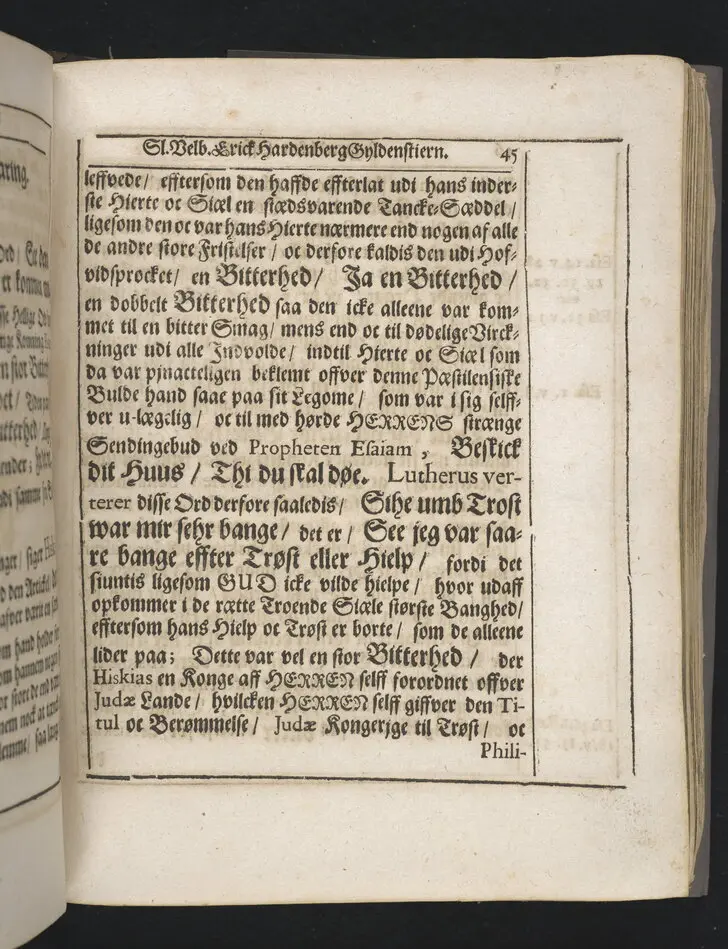 Sl. Velb. Erick Hardenberg Gyldenstiern. 45
leffvede/ efftersom den haffde effterlat udi hans inder-
ste Hierte oc Siæl en stædsvarende Tancke-Sæddel/
ligesom den oc var hans Hierte nærmere end nogen af alle
de andre store Fristelser/ oc derfore kaldis den udi Hof-
vidsprocket/ en Bitterhed/ Ja en Bitterhed/
en dobbelt Bitterhed saa den icke alleene var kom-
met til en bitter Smag/ mens end oc til dødelige Virck-
ninger udi alle Indvolde/ indtil Hierte oc Siæl som
da var pjnacteligen beklemt offver denne Pæstilensiske
Bulde hand saae paa sit Legome/ som var i sig selff-
ver u-lægelig/ oc til med hørde HERRENS strænge
Sendingebud ved Propheten Esaiam, Beskick
dit Huus/ Thi du skal døe. Lutherus ver-
terer disse Ord derfore saaledis/ Sihe umb Trost
war mir sehr bange/ det er/ See jeg var saa-
re bange effter Trøst eller Hielp/ fordi det
siuntis ligesom GUD icke vilde hielpe/ hvor udaff
opkommer i de rætte Troende Siæle største Banghed/
efftersom hans Hielp oc Trøst er borte/ som de alleene
lider paa; Dette var vel en stor Bitterhed/ der
Hiskias en Konge aff HERREN self forordnet offver
Judæ Lande/ hvilcken HERREN selff giffver den Ti-
tul oc Berømmelse/ Judæ Kongerjge til Trøst/ oc
Phili-